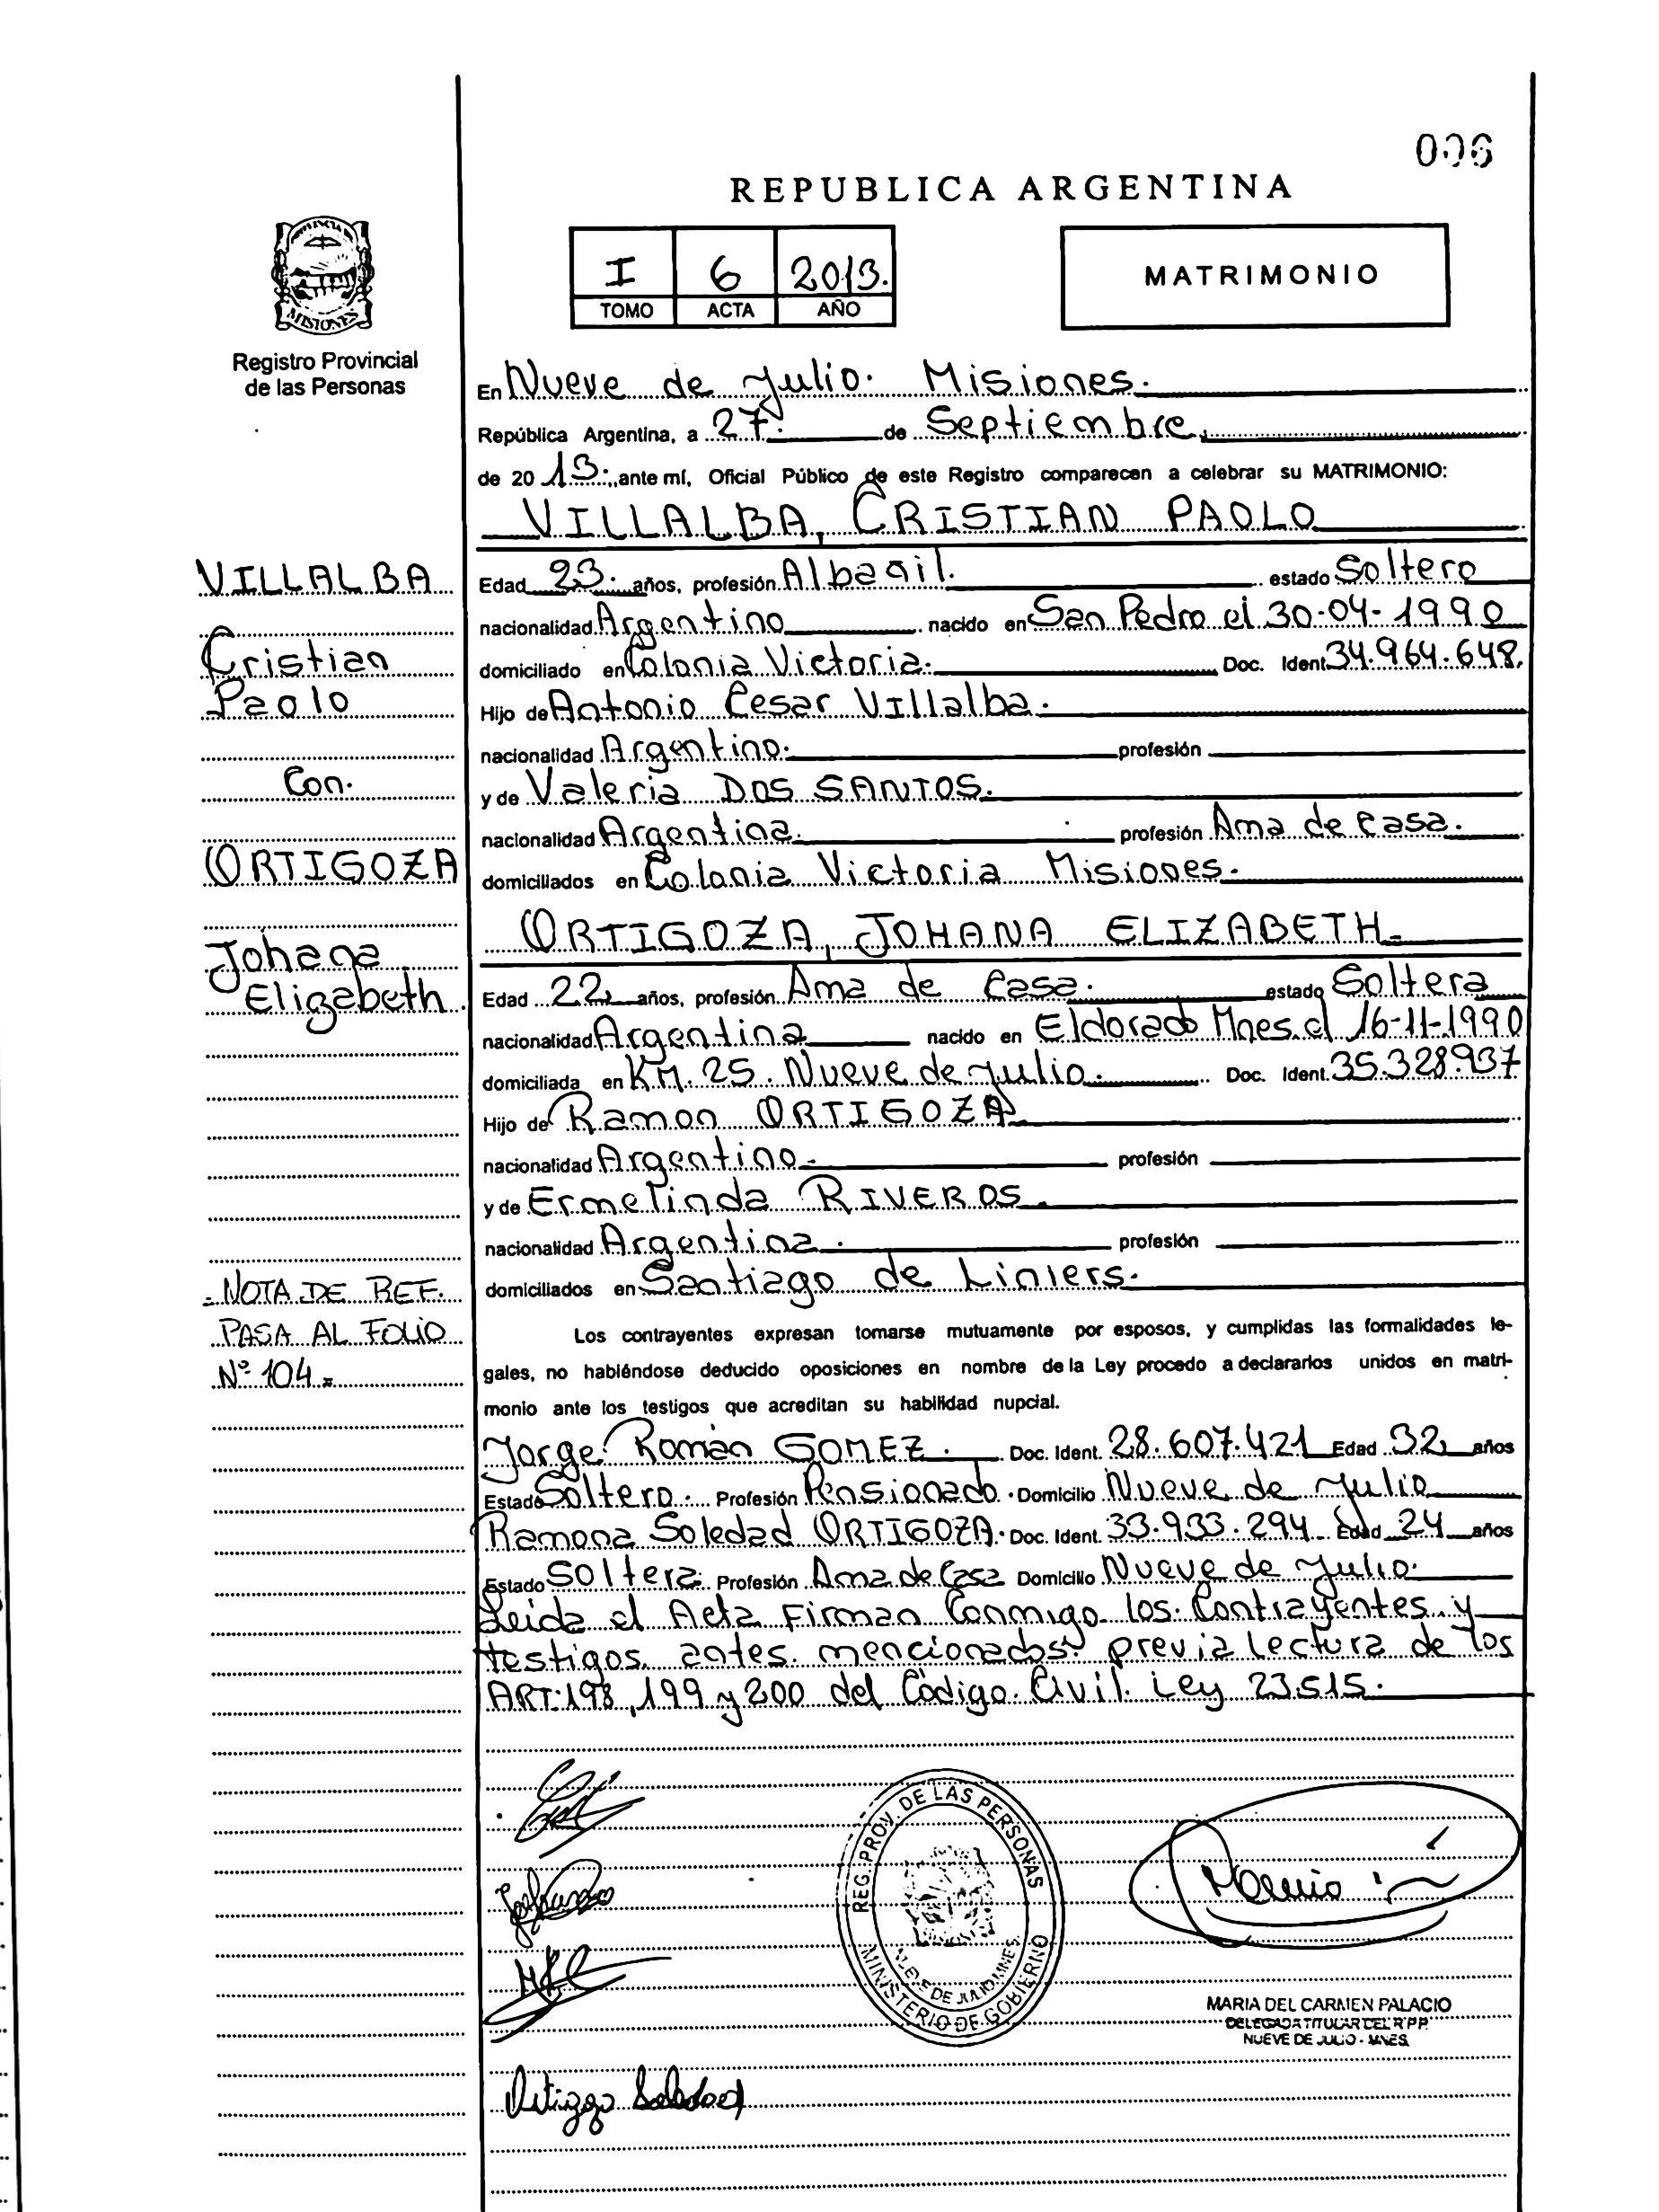 006
REPUBLICA ARGENTINA
I 6 2013.
TOMO ACTA AÑO
MATRIMONIO
MISIONES
Registro Provincial
de las Personas
En Nueve de Julio. Misiones.
República Argentina, a 27. de Septiembre,
de 20 13. ante mí, Oficial Público de este Registro comparecen a celebrar su MATRIMONIO:
VILLALBA, CRISTIAN PAOLO
VILLALBA
Cristian
Paolo
Con.
ORTIGOZA
Johana
Elizabeth
Edad 23. años, profesión Albañil. estado Soltero
nacionalidad Argentino nacido en San Pedro el 30-04-1990
domiciliado en Colonia Victoria. Doc. Ident. 34.964.648.
Hijo de Antonio Cesar Villalba.
nacionalidad Argentino. profesión
y de Valeria DOS SANTOS.
nacionalidad Argentina. profesión Ama de Casa.
domiciliados en Colonia Victoria Misiones.
ORTIGOZA, JOHANA ELIZABETH.
Edad 22 años, profesión Ama de Casa. estado Soltera
nacionalidad Argentina nacido en Eldorado Mnes. el 16-11-1990
domiciliada en KM. 25. Nueve de Julio. Doc. Ident. 35.328.937
Hijo de Ramon ORTIGOZA
nacionalidad Argentino. profesión
y de Ermelinda RIVEROS.
nacionalidad Argentina. profesión
domiciliados en Santiago de Liniers.
- NOTA DE REF.
PASA AL FOLIO
Nº 104.=
Los contrayentes expresan tomarse mutuamente por esposos, y cumplidas las formalidades le-
gales, no habiéndose deducido oposiciones en nombre de la Ley procedo a declararlos unidos en matri-
monio ante los testigos que acreditan su habilidad nupcial.
Jorge Román GOMEZ. Doc. Ident. 28.607.421 Edad 32 años
Estado Soltero. Profesión Pensionado. Domicilio Nueve de Julio
Ramona Soledad ORTIGOZA. Doc. Ident. 33.933.294 Edad 24 años
Estado Soltera. Profesión Ama de Casa Domicilio Nueve de Julio.
Leida el Acta Firman Conmigo los Contrayentes y
testigos antes mencionados. previa lectura de los
ART: 198, 199 y 200 del Código Civil. Ley 23.515.
REG. PROV. DE LAS PERSONAS
NUEVE DE JULIO MNES.
MINISTERIO DE GOBIERNO
MARIA DEL CARMEN PALACIO
DELEGADA TITULAR DEL R.P.P.
NUEVE DE JULIO - MNES.
Ortigoza Soledad